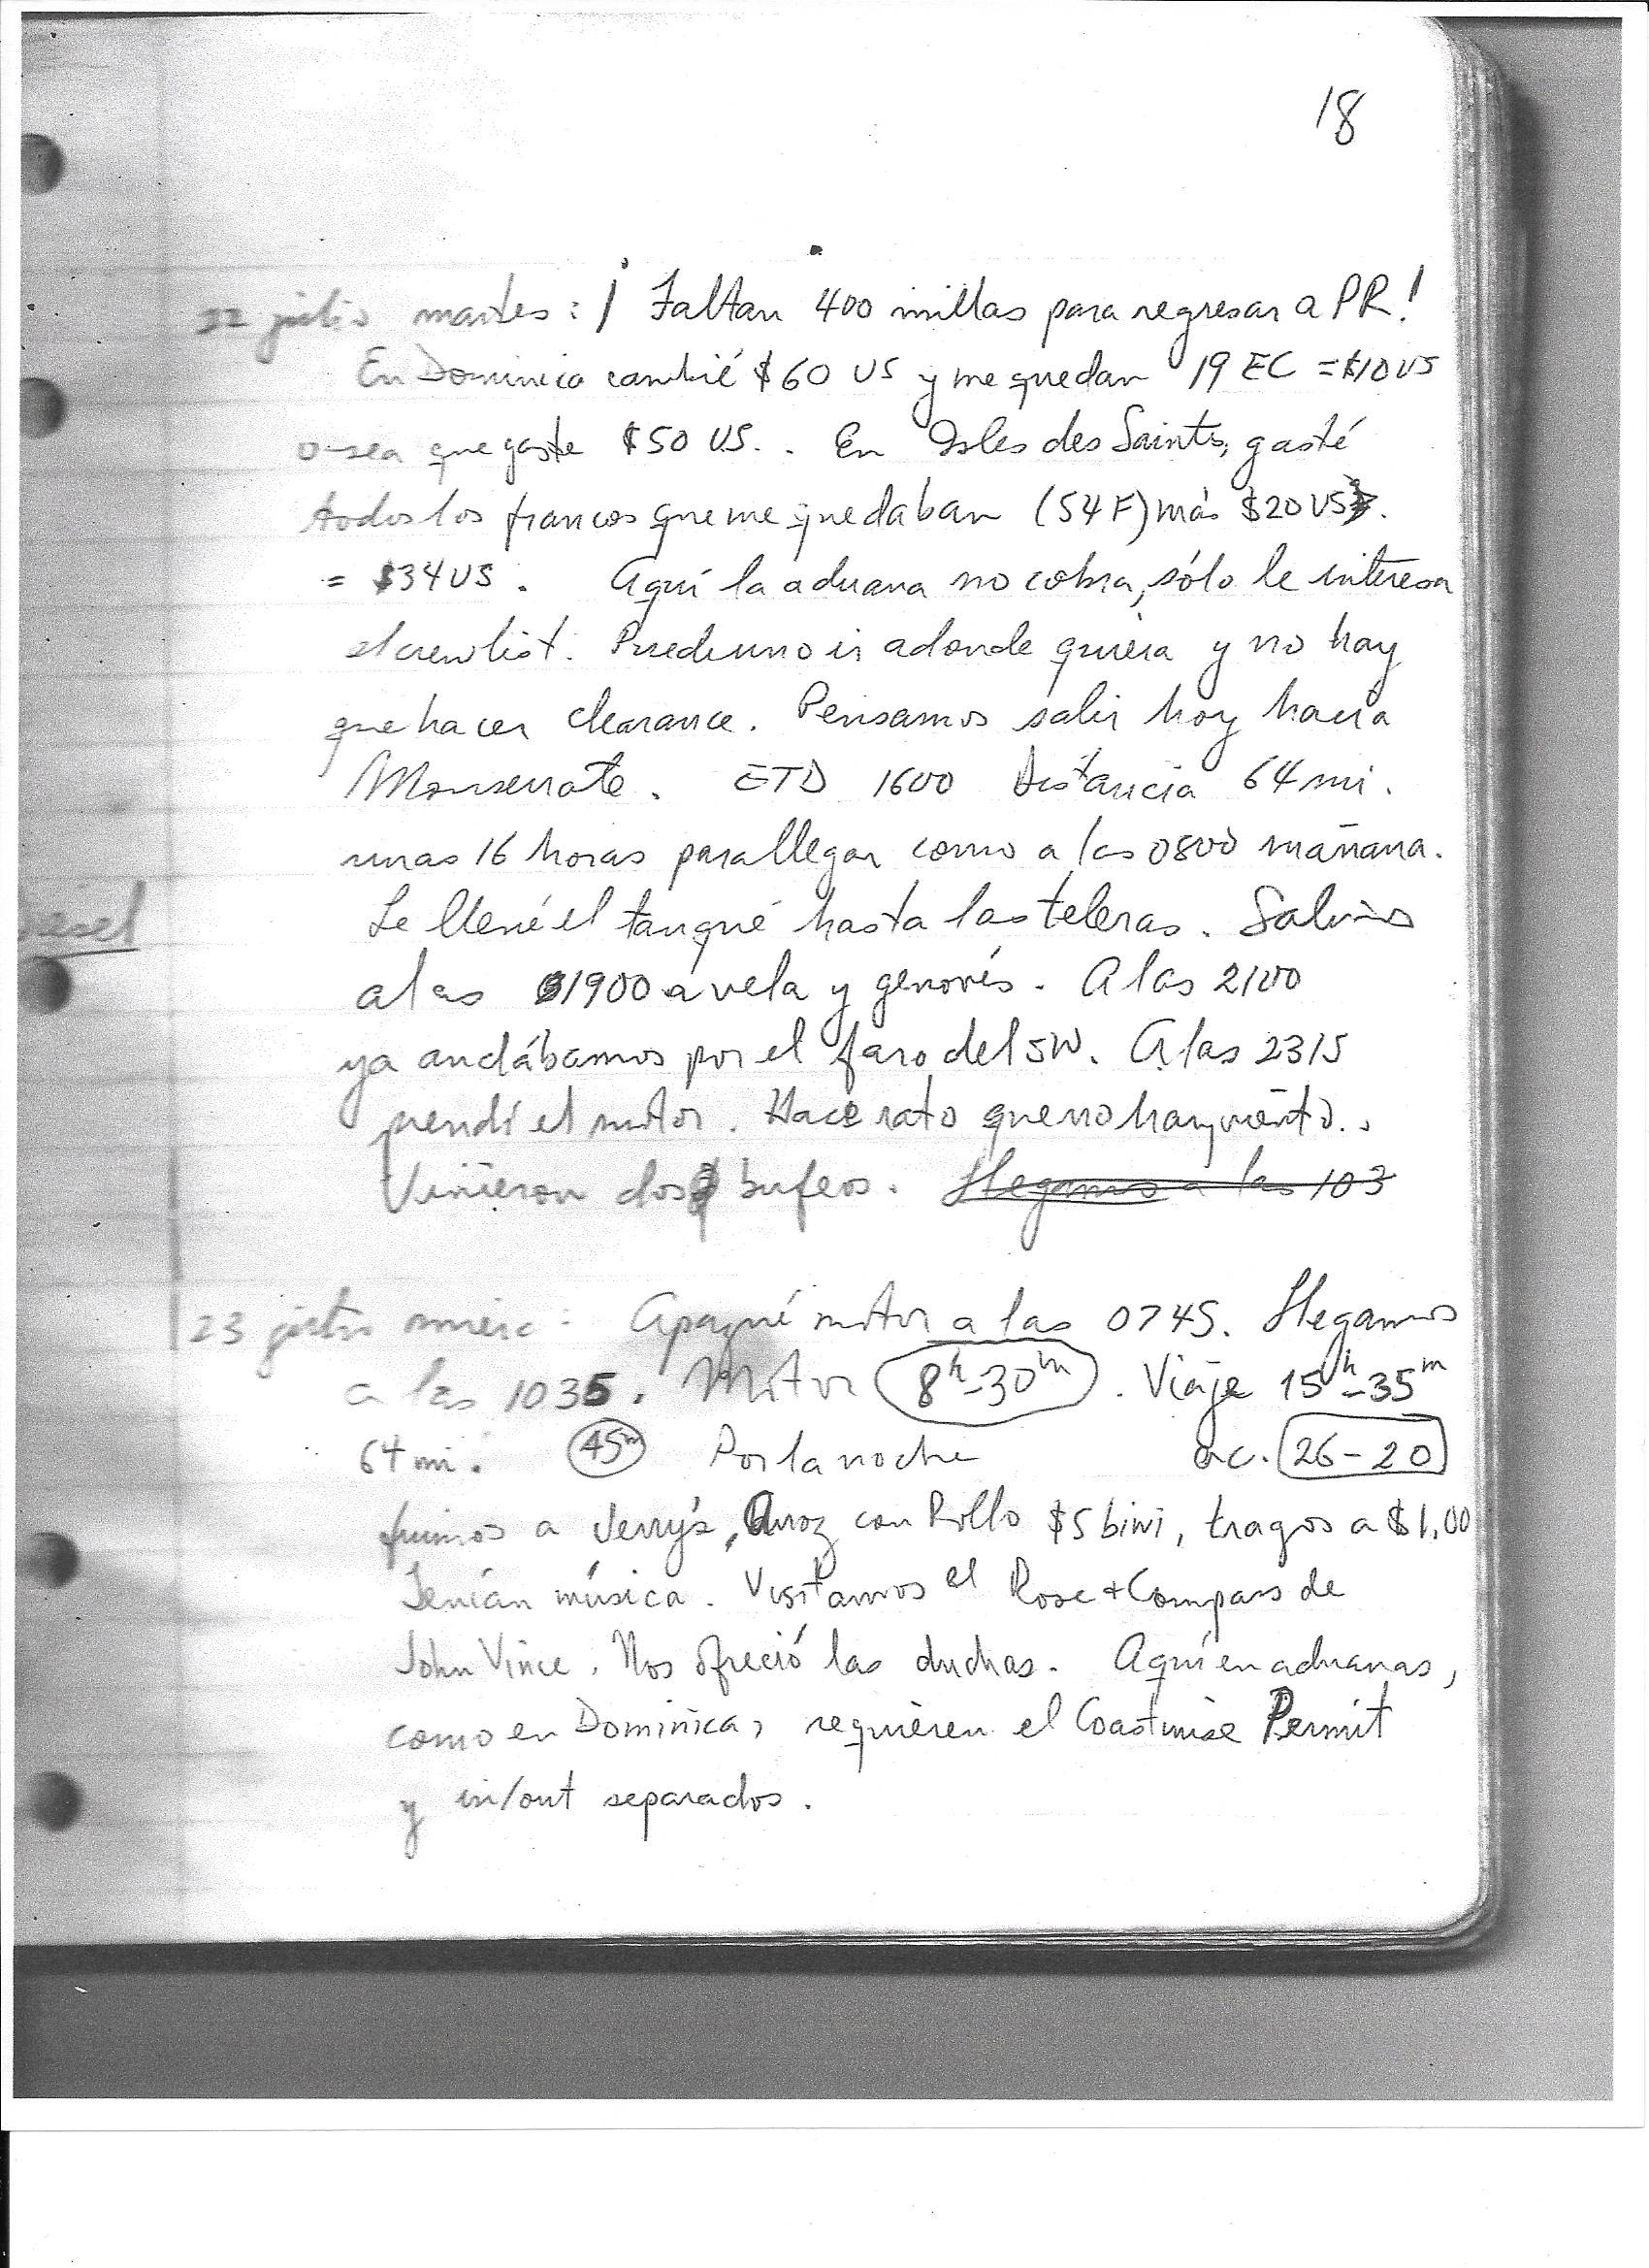 18
22 julio martes: ¡Faltan 400 millas para regresar a PR!
En Dominica cambié $60 US y me quedan 19 EC = $10 US
o sea que gaste $50 US.. En Isles des Saints, gasté
todos los francos que me quedaban (54 F) más $20 US
= $34 US. Aquí la aduana no cobra, sólo le interesa
el crewlist. Puede uno ir adonde quiera y no hay
que hacer clearance. Pensamos salir hoy hacia
Monserrate. ETD 1600 Distancia 64 mi.
unas 16 horas para llegar como a las 0800 mañana.
diesel
Le llené el tanque hasta las teleras. Salimos
a las 1900 a vela y genovés. A las 2100
ya andábamos por el faro del SW. A las 2315
prendí el motor. Hace rato que no hay viento..
Vinieron dos bufeos. Llegamos a las 103
23 julio mierc: Apagué motor a las 0745. Llegamos
a las 1035. Motor 8h-30m. Viaje 15h-35m
64 mi. 45m Por la noche ac. 26-20
fuimos a Jerry's, Arroz con Pollo $5 biwi, tragos a $1.00
Tenían música. Visitamos el Rose + Compass de
John Vince. Nos ofreció las duchas. Aquí en aduanas,
como en Dominica, requieren el Coastwise Permit
y in/out separados.